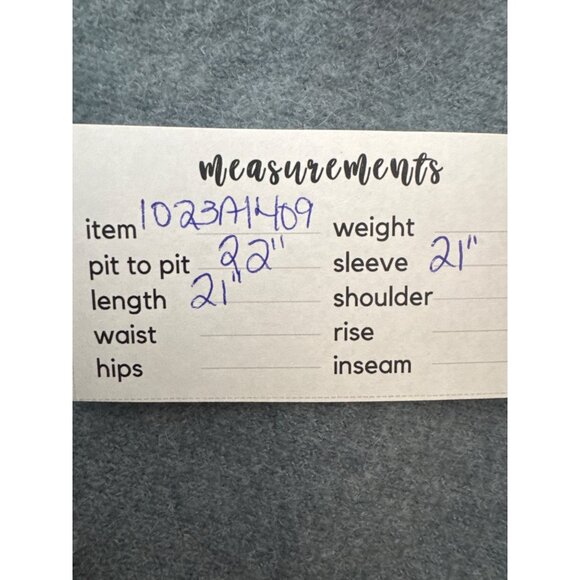 measurements
item 1023A1409 weight
pit to pit 22" sleeve 21"
length 21" shoulder
waist rise
hips inseam